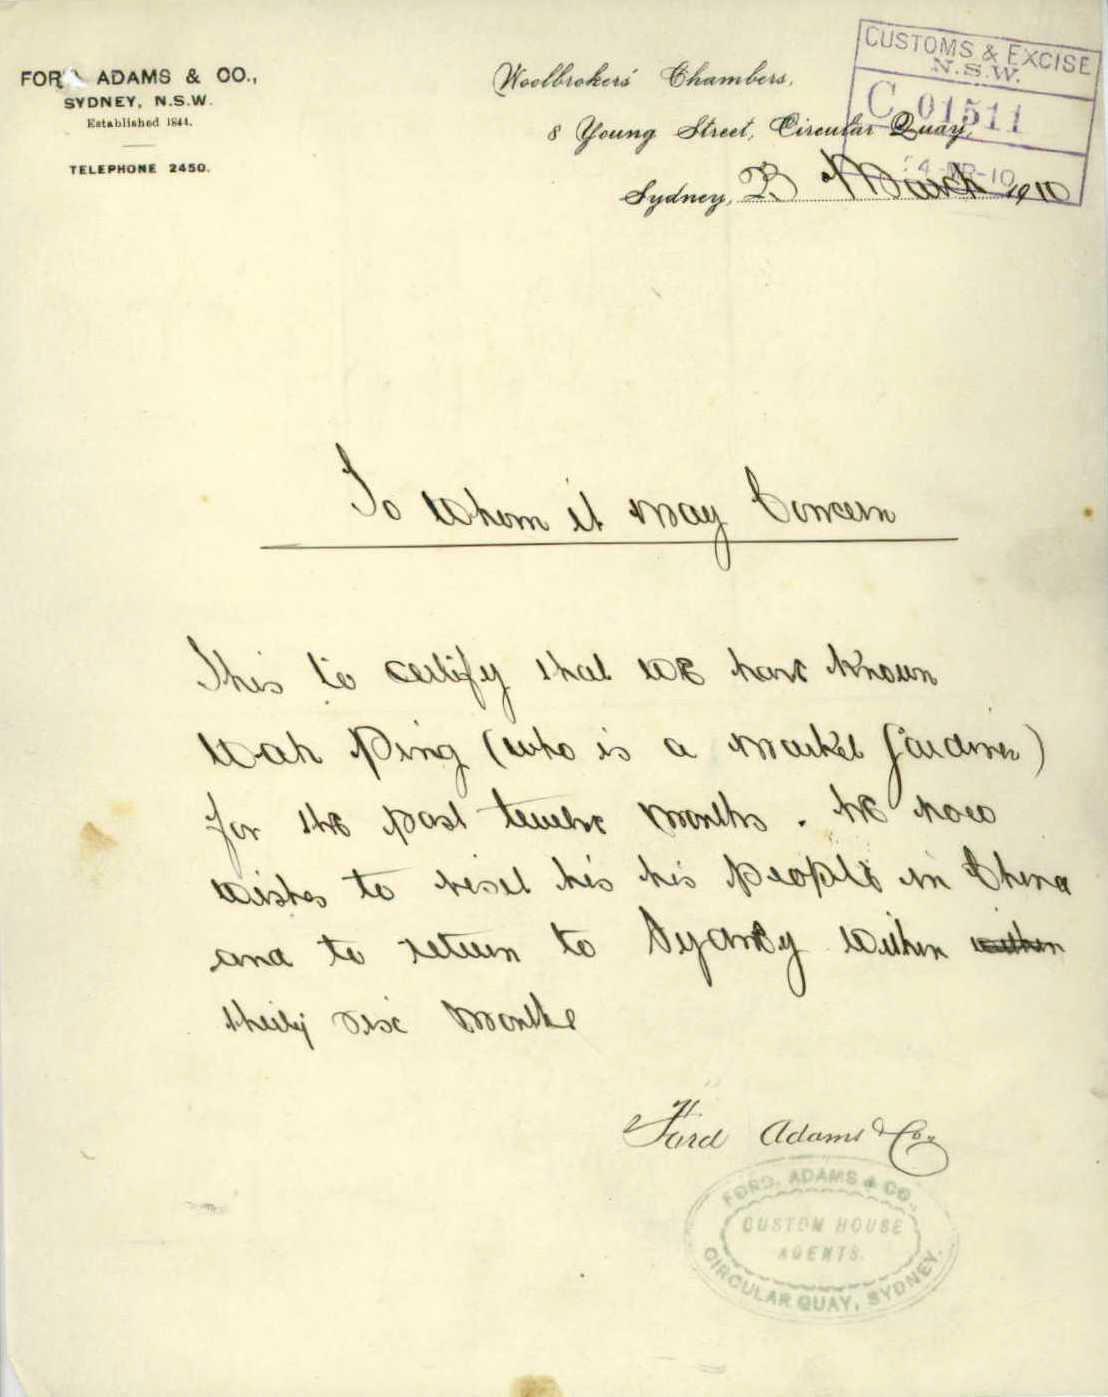 FORD ADAMS & CO.,
SYDNEY, N.S.W.
Established 1844.
TELEPHONE 2450.
Woolbrokers' Chambers,
8 Young Street, Circular Quay,
Sydney, 23 March 1910
CUSTOMS & EXCISE
N.S.W.
C 01511
To Whom it May Concern
This to certify that we have known
Wah Ping (who is a Market Gardiner)
for the past twelve months. He now
wishes to visit his his people in China
and to return to Sydney within within
thirty six months
Ford Adams & Co.
FORD, ADAMS & CO.,
CUSTOM HOUSE
AGENTS.
CIRCULAR QUAY, SYDNEY.